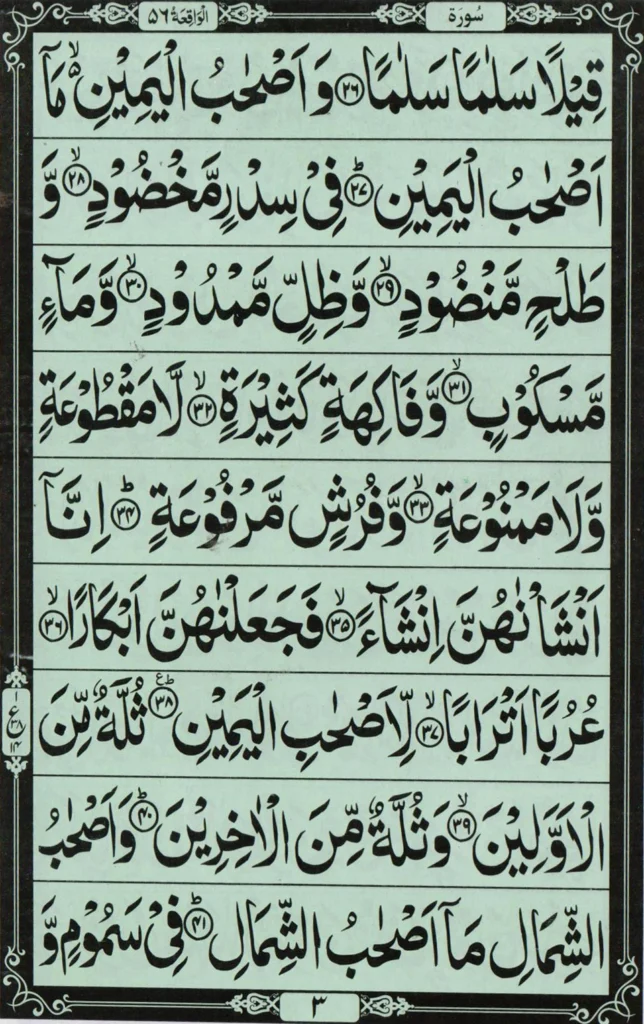 سُورَة
الْوَاقِعَة ٥٦
قِيْلًا سَلٰمًا سَلٰمًا ﴿٢٦﴾ وَ اَصْحٰبُ الْيَمِيْنِ ۙ۬ مَاۤ
اَصْحٰبُ الْيَمِيْنِ ؕ﴿٢٧﴾ فِيْ سِدْرٍ مَّخْضُوْدٍ ۙ﴿٢٨﴾ وَّ
طَلْحٍ مَّنْضُوْدٍ ۙ﴿٢٩﴾ وَّظِلٍّ مَّمْدُوْدٍ ۙ﴿٣٠﴾ وَّمَآءٍ
مَّسْكُوْبٍ ۙ﴿٣١﴾ وَّفَاكِهَةٍ كَثِيْرَةٍ ۙ﴿٣٢﴾ لَّا مَقْطُوْعَةٍ
وَّلَا مَمْنُوْعَةٍ ۙ﴿٣٣﴾ وَّفُرُشٍ مَّرْفُوْعَةٍ ؕ﴿٣٤﴾ اِنَّاۤ
اَنْشَاْنٰهُنَّ اِنْشَآءً ۙ﴿٣٥﴾ فَجَعَلْنٰهُنَّ اَبْكَارًا ۙ﴿٣٦﴾
عُرُبًا اَتْرَابًا ۙ﴿٣٧﴾ لِّاَصْحٰبِ الْيَمِيْنِ ؕع﴿٣٨﴾ ثُلَّةٌ مِّنَ
١
ع ٣٨
١٤
الْاَوَّلِيْنَ ۙ﴿٣٩﴾ وَثُلَّةٌ مِّنَ الْاٰخِرِيْنَ ؕ﴿٤٠﴾ وَاَصْحٰبُ
الشِّمَالِ مَاۤ اَصْحٰبُ الشِّمَالِ ؕ﴿٤١﴾ فِيْ سَمُوْمٍ وَّ
٣